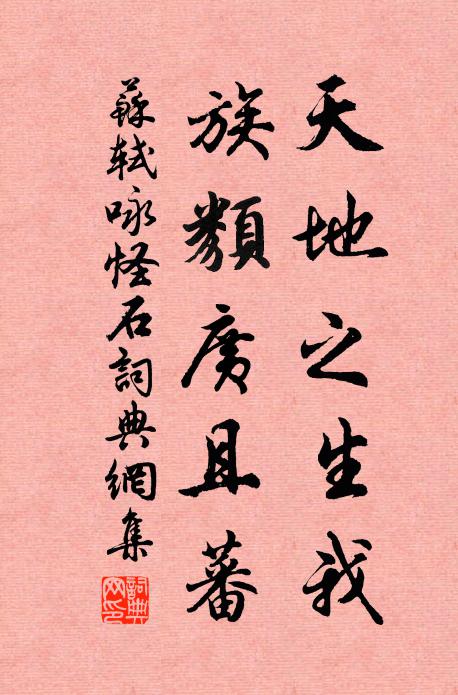 天地之生我
族類廣且蕃
蘇軾咏怪石詞典網集
詞典網印